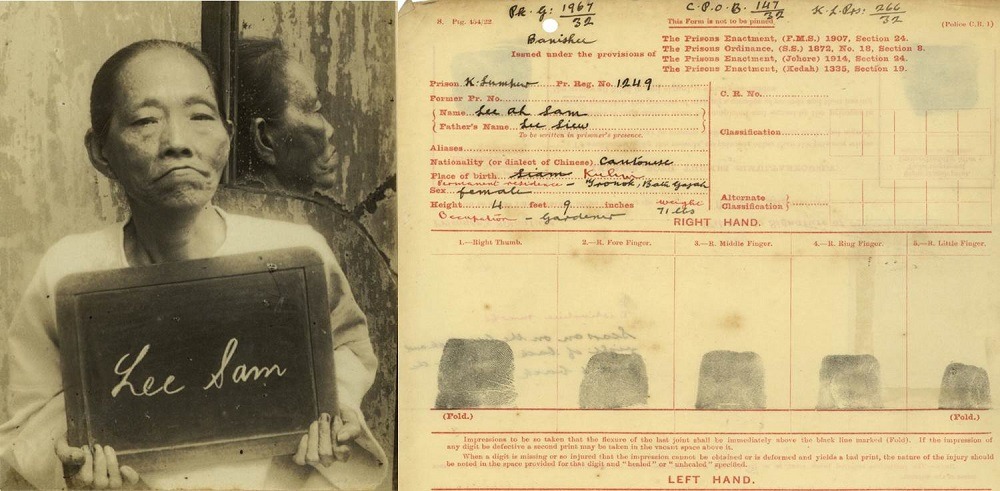 Lee Sam
8. Pig. 454/22.
PR. G: 1967/32
C. P. O. B. 147/32
K. L. Prs: 266/32
This Form is not to be pinned
(Police C.R. 1)
Banishee
Issued under the provisions of
The Prisons Enactment, (F.M.S.) 1907, Section 24.
The Prisons Ordinance, (S.S.) 1872, No. 18, Section 8.
The Prisons Enactment, (Johore) 1914, Section 24.
The Prisons Enactment, (Kedah) 1335, Section 19.
Prison K. Lumpur Pr. Reg. No. 1249
Former Pr. No.
Name Lee ah Sam
Father's Name Lee Siew
To be written in prisoner's presence.
Aliases
Nationality (or dialect of Chinese) Cantonese
Place of birth Siam
Permanent residence - Gajah
Sex female
Height 4 feet 9 inches
weight 71 lbs
Occupation - Gardener
C. R. No.
Classification
Alternate
Classification
RIGHT HAND.
1.—Right Thumb.
2.—R. Fore Finger.
3.—R. Middle Finger.
4.—R. Ring Finger.
5.—R. Little Finger.
(Fold.)
(Fold.)
Impressions to be so taken that the flexure of the last joint shall be immediately above the black line marked (Fold). If the impression of
any digit be defective a second print may be taken in the vacant space above it.
When a digit is missing or so injured that the impression cannot be obtained or is deformed and yields a bad print, the nature of the injury should
be noted in the space provided for that digit and "healed" or "unhealed" specified.
LEFT HAND.